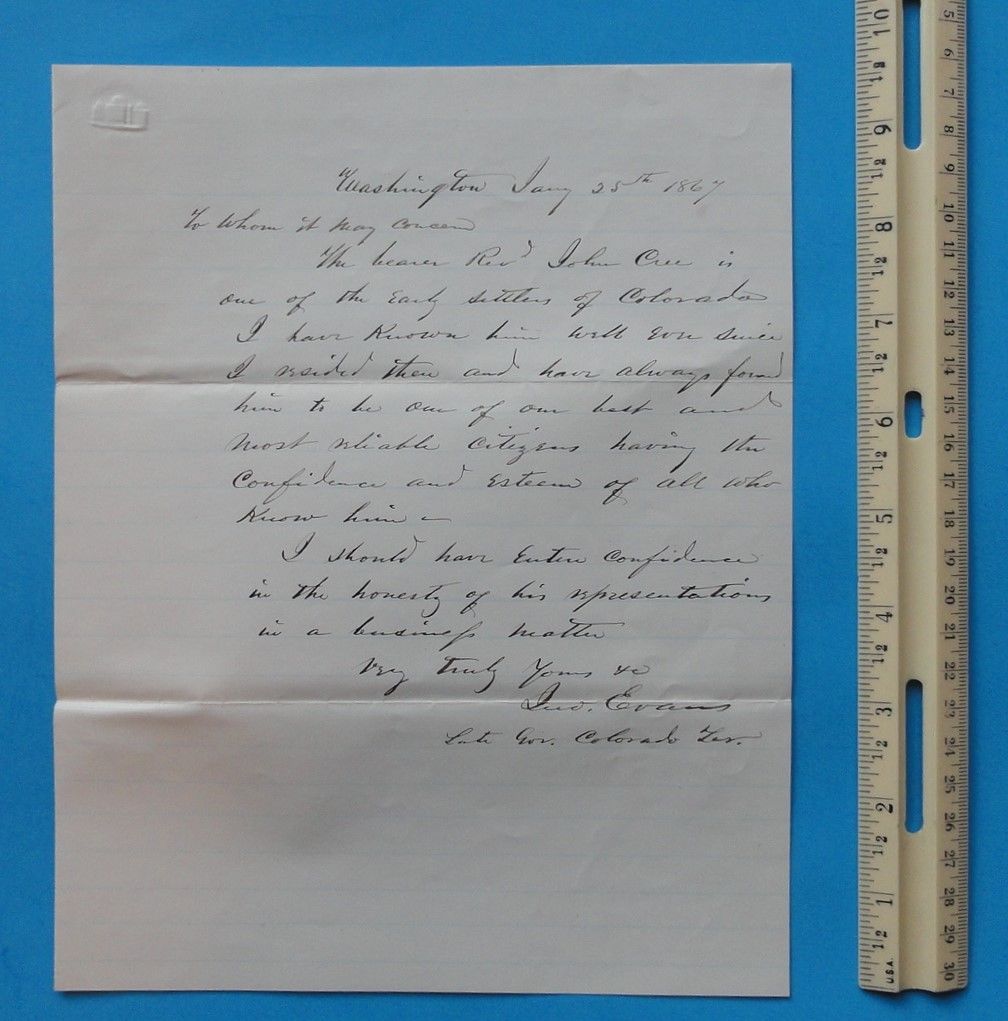 Washington Jany 25th 1867
To Whom it may concern
The bearer Revd John Cree is
one of the Early settlers of Colorado
I have Known him well ever since
I resided there and have always found
him to be one of our best and
most reliable Citizens having the
Confidence and Esteem of all who
Know him –
I should have Entire confidence
in the honesty of his representations
in a business matter
Very truly Yours &c
Jno. Evans
Late Gov. Colorado Ter.
10
9
8
7
6
5
4
3
2
1
U.S.A.
5
6
7
8
9
10
11
12
13
14
15
16
17
18
19
20
21
22
23
24
25
26
27
28
29
30